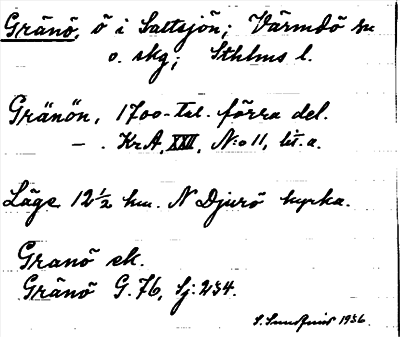 Gränö, ö i Saltsjön; Värmdö sn
o. skg; Sthlms l.
Gränön, 1700-tal. förra del.
— . Kr.A, XXII, N:o 11, lit. a.
Läge 12½ km. N Djurö kyrka.
Granö ek.
Gränö G. 76, Sj: 234.
S. Sundqvist 1936.